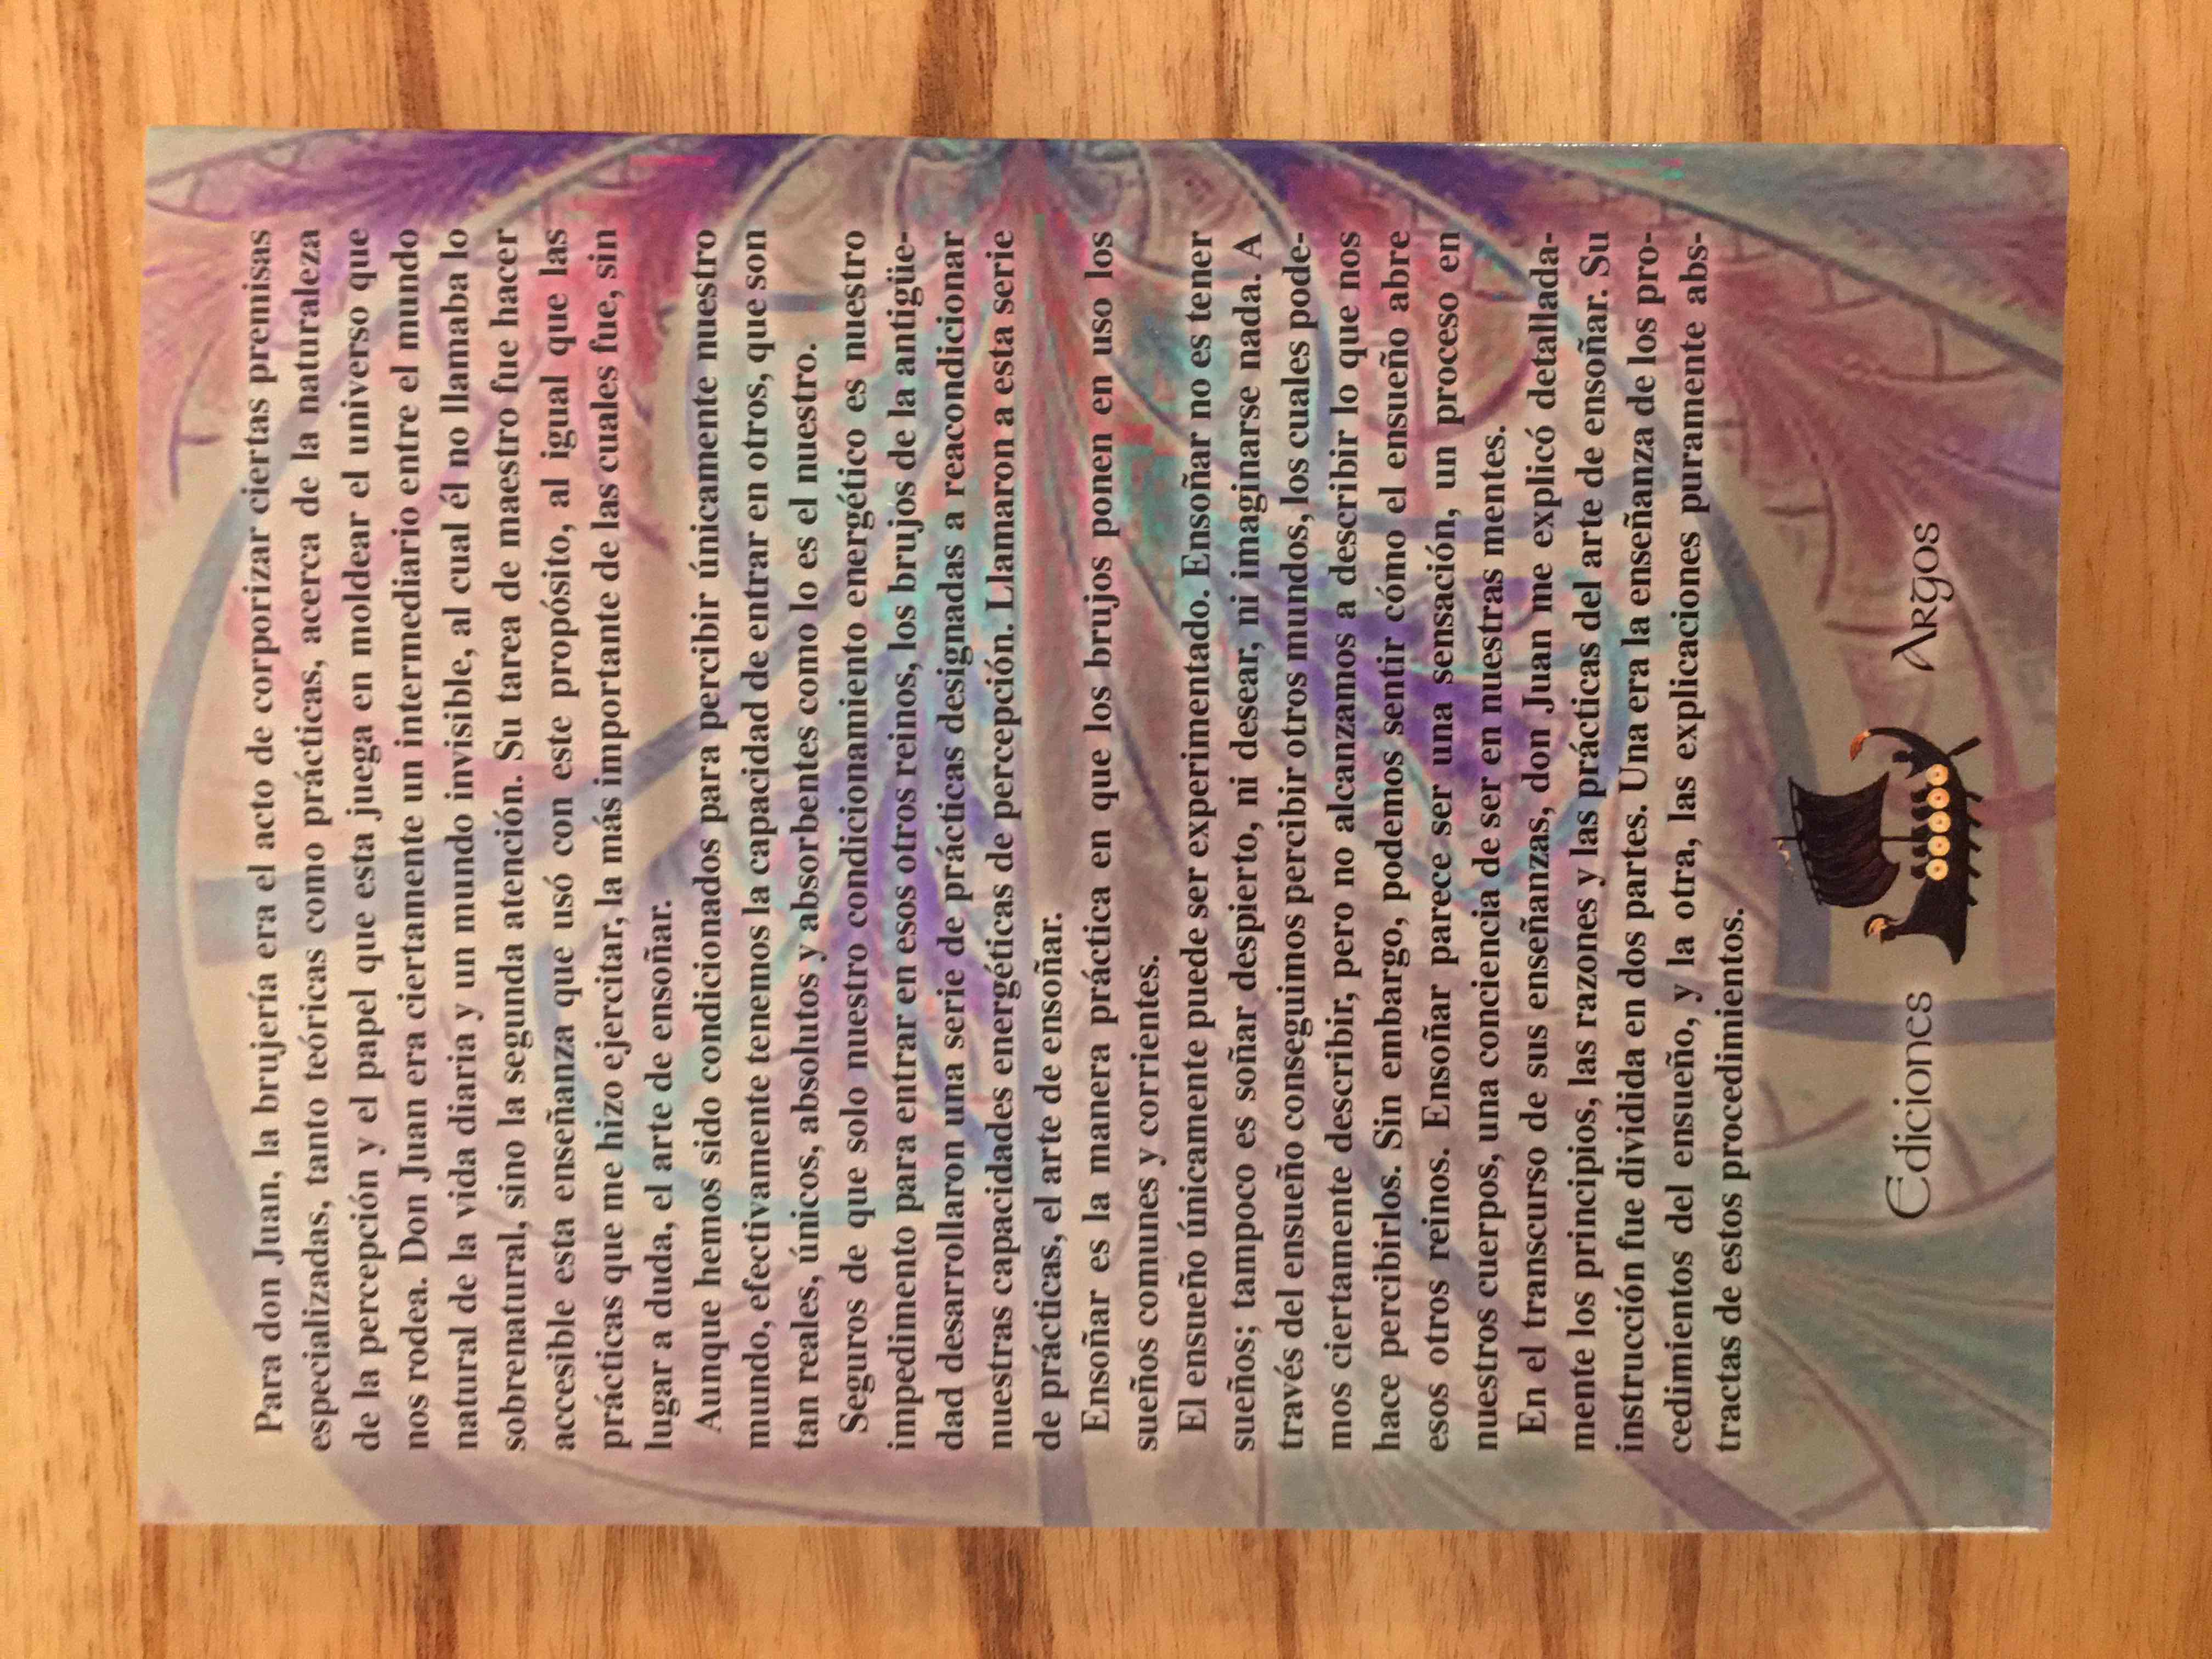 Para don Juan, la brujería era el acto de corporizar ciertas premisas
especializadas, tanto teóricas como prácticas, acerca de la naturaleza
de la percepción y el papel que esta juega en moldear el universo que
nos rodea. Don Juan era ciertamente un intermediario entre el mundo
natural de la vida diaria y un mundo invisible, al cual él no llamaba lo
sobrenatural, sino la segunda atención. Su tarea de maestro fue hacer
accesible esta enseñanza que usó con este propósito, al igual que las
prácticas que me hizo ejercitar, la más importante de las cuales fue, sin
lugar a duda, el arte de ensoñar.
Aunque hemos sido condicionados para percibir únicamente nuestro
mundo, efectivamente tenemos la capacidad de entrar en otros, que son
tan reales, únicos, absolutos y absorbentes como lo es el nuestro.
Seguros de que solo nuestro condicionamiento energético es nuestro
impedimento para entrar en esos otros reinos, los brujos de la antigüe-
dad desarrollaron una serie de prácticas designadas a reacondicionar
nuestras capacidades energéticas de percepción. Llamaron a esta serie
de prácticas, el arte de ensoñar.
Ensoñar es la manera práctica en que los brujos ponen en uso los
sueños comunes y corrientes.
El ensueño únicamente puede ser experimentado. Ensoñar no es tener
sueños; tampoco es soñar despierto, ni desear, ni imaginarse nada. A
través del ensueño conseguimos percibir otros mundos, los cuales pode-
mos ciertamente describir, pero no alcanzamos a describir lo que nos
hace percibirlos. Sin embargo, podemos sentir cómo el ensueño abre
esos otros reinos. Ensoñar parece ser una sensación, un proceso en
nuestros cuerpos, una conciencia de ser en nuestras mentes.
En el transcurso de sus enseñanzas, don Juan me explicó detallada-
mente los principios, las razones y las prácticas del arte de ensoñar. Su
instrucción fue dividida en dos partes. Una era la enseñanza de los pro-
cedimientos del ensueño, y la otra, las explicaciones puramente abs-
tractas de estos procedimientos.
Ediciones Argos